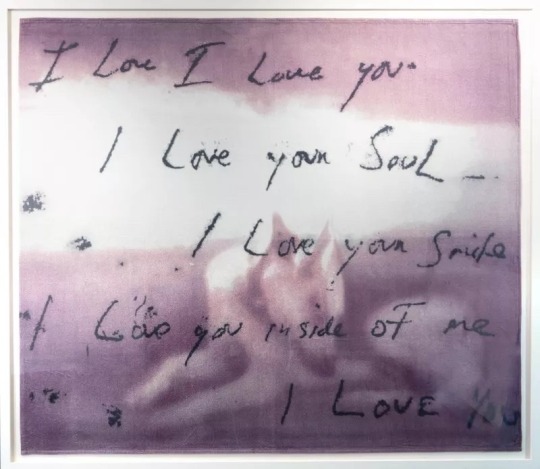 I Love I Love you
I Love your Soul
I Love your Smile
I Love you inside of me
I Love You